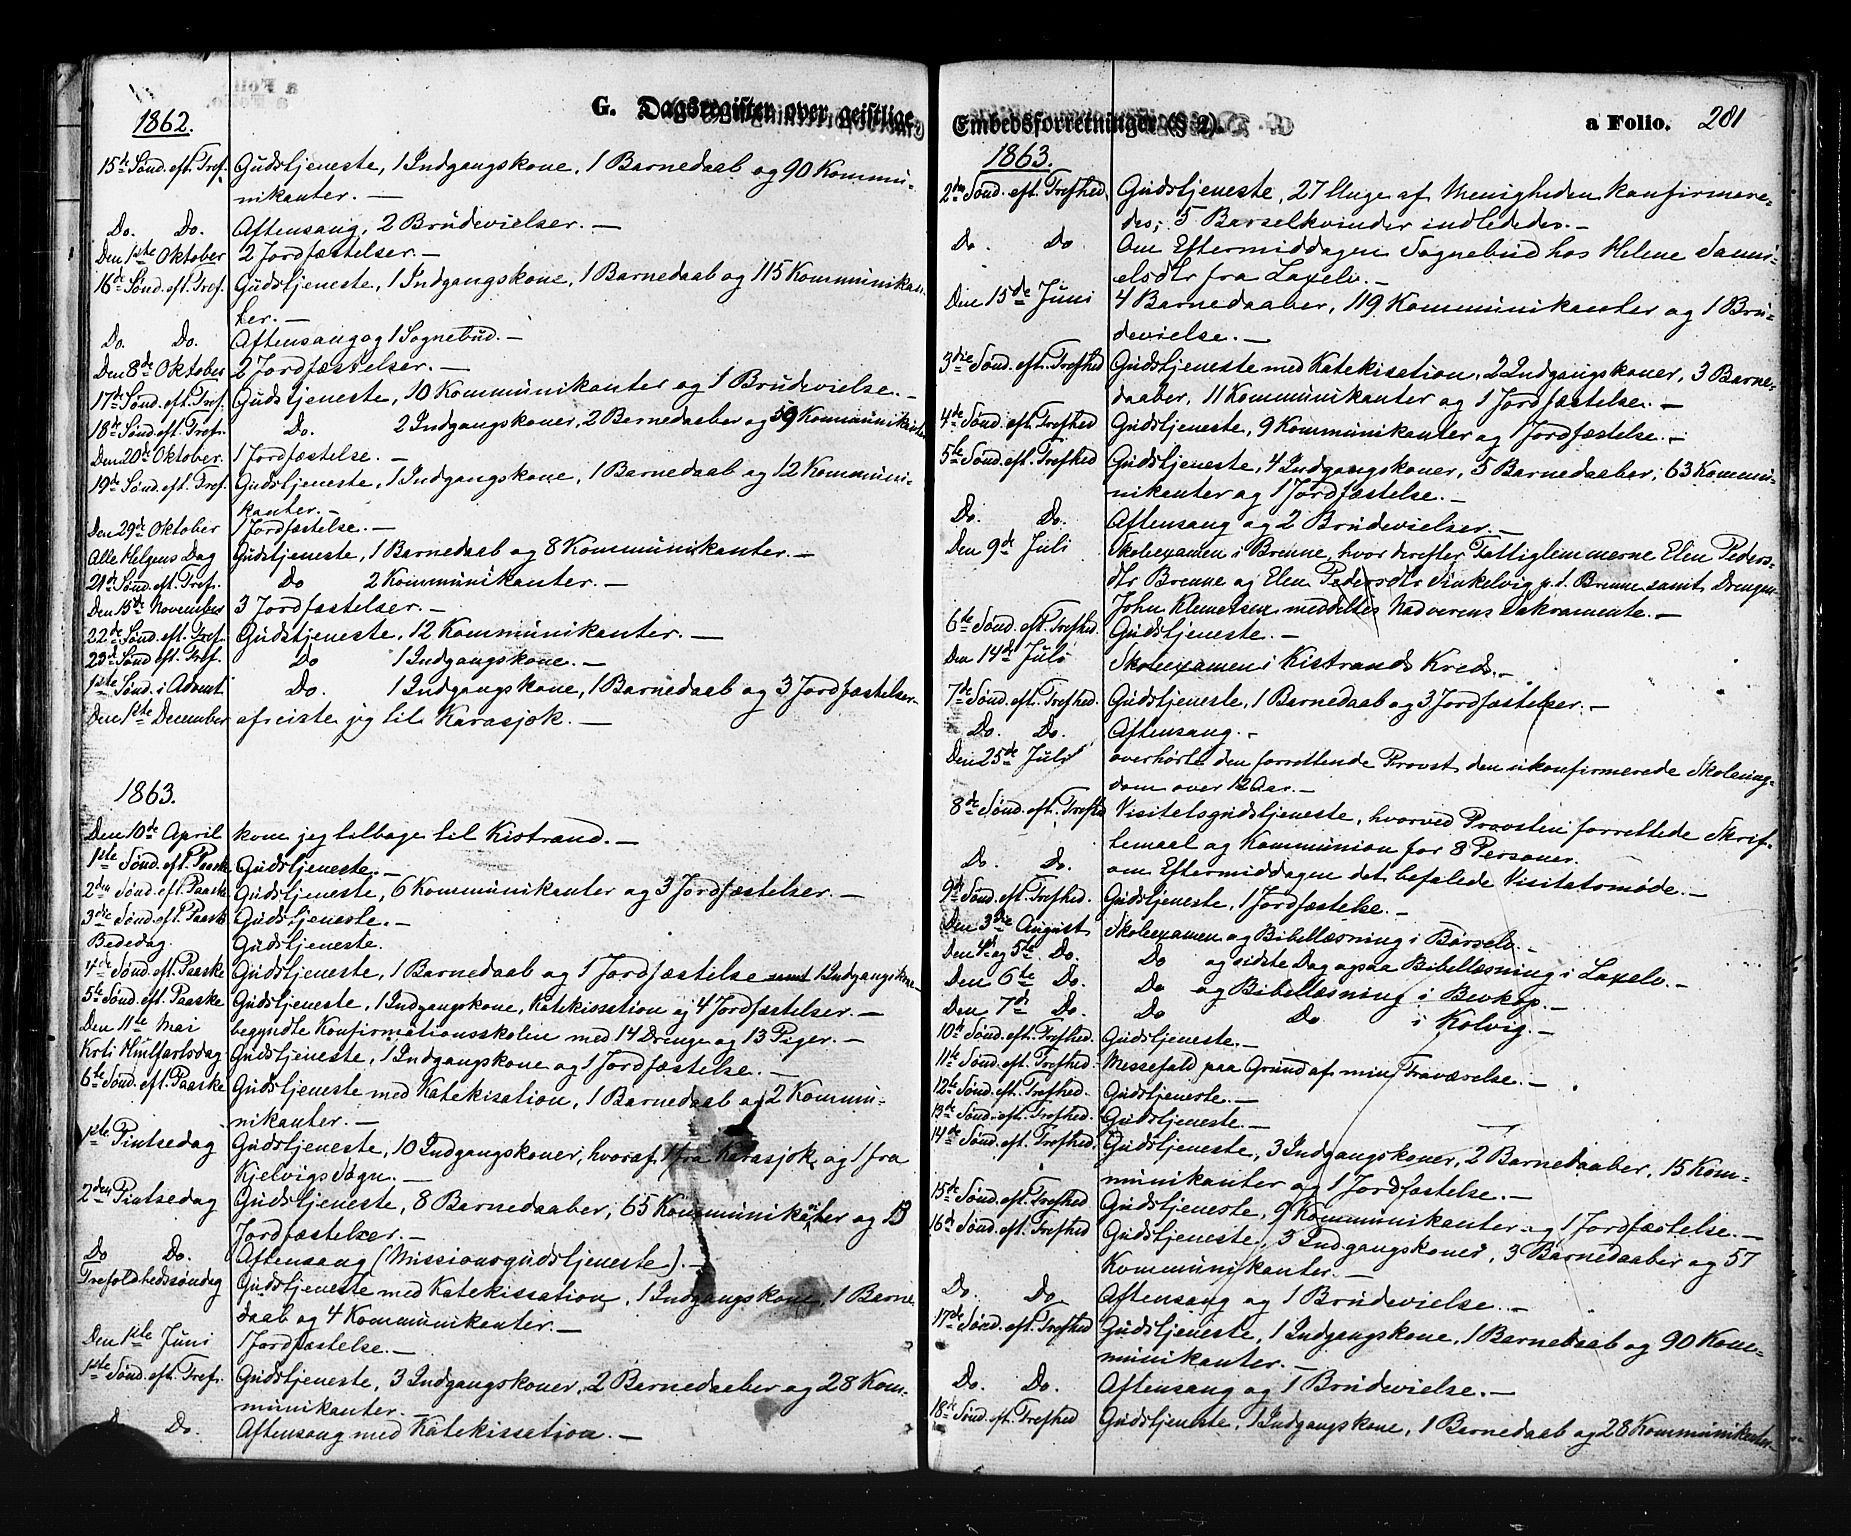 G. Dagsregister over geistlige
1862.
15de Sønd. eft. Tref. Gudstjeneste, 1 Indgangskone, 1 Barnedaab og 90 Kommu-
nikanter. —
Do. Do. Aftensang, 2 Brudevielser. —
Den 1ste Oktober 2 Jordfæstelser. —
16de Sønd. eft. Tref. Gudstjeneste, 1 Indgangskone, 1 Barnedaab og 115 Kommunikan-
ter. —
Do. Do. Aftensang og 1 Sognebud. —
Den 8de Oktober 2 Jordfæstelser. —
17de Sønd. eft. Tref. Gudstjeneste, 10 Kommunikanter og 1 Brudevielse. —
18de Sønd. eft. Tref. Do. 2 Indgangskoner, 2 Barnedaaber og 59 Kommunikanter
Den 20de Oktober. 1 Jordfæstelse. —
19de Sønd. eft. Tref. Gudstjeneste, 1 Indgangskone, 1 Barnedaab og 12 Kommuni-
kanter. —
Den 29de Oktober 1 Jordfæstelse. —
Alle Helgens Dag Gudstjeneste, 1 Barnedaab og 8 Kommunikanter. —
21de Sønd. eft. Tref. Do 2 Kommunikanter. —
Den 15de November 3 Jordfæstelser. —
22de Sønd. eft. Tref. Gudstjeneste, 12 Kommunikanter. —
23de Sønd. eft. Tref. Do 1 Indgangskone. —
1ste Sønd. i Advent Do. 1 Indgangskone, 1 Barnedaab og 3 Jordfæstelser. —
Den 1ste December afreiste jeg til Karasjok. —
1863.
Den 10de April kom jeg tilbage til Kistrand. —
1ste Sønd. eft. Paaske Gudstjeneste. —
2den Sønd. eft. Paaske Gudstjeneste, 6 Kommunikanter og 3 Jordfæstelser. —
3die Sønd. eft. Paaske Gudstjeneste. —
Bededag. Gudstjeneste.
4de Sønd. eft. Paaske Gudstjeneste, 1 Barnedaab og 1 Jordfæstelse samt 1 Indgangskone
5te Sønd. eft. Paaske Gudstjeneste, 1 Indgangskone, Katekisation og 4 Jordfæstelser. —
Den 11te Mai begyndte Konfirmationsskolen med 14 Drenge og 13 Piger. —
Krti Himlfartsdag Gudstjeneste, 1 Indgangskone og 1 Jordfæstelse. —
6te Sønd. eft. Paaske Gudstjeneste med Katekisation, 1 Barnedaab og 2 Kommu-
nikanter. —
1ste Pintsedag Gudstjeneste, 10 Indgangskoner, hvoraf 1 fra Karasjok og 1 fra
Kjelvigs Sogn. —
2den Pintsedag Gudstjeneste, 8 Barnedaaber, 65 Kommunikanter og 13
Jordfæstelser. —
Do Do. Aftensang (Missionsgudstjeneste). —
Trefoldhedssøndag Gudstjeneste med Katekisation, 1 Indgangskone, 1 Barne-
daab og 4 Kommunikanter. —
Den 1ste Juni 1 Jordfæstelse. —
1ste Sønd. eft. Tref. Gudstjeneste, 3 Indgangskoner, 2 Barnedaaber og 28 Kom-
munikanter. —
Do Do. Aftensang med Katekisation. —
Embedsforretninger (§ 2).
a Folio. 281
1863.
2den Sønd. eft. Trefhed. Gudstjeneste, 27 Unge af Menigheden konfirmere-
des; 5 Barselkvinder indlededes. —
Do. Do Om Eftermiddagen Sognebud hos Helene Samu-
elsdtr fra Laxelv. —
Den 15de Juni 4 Barnedaaber, 119 Kommunikanter og 1 Bru-
devielse. —
3die Sønd. eft. Trefhed Gudstjeneste med Katekisation, 2 Indgangskoner, 3 Barne-
daaber, 11 Kommunikanter og 1 Jordfæstelse. —
4de Sønd. eft. Trefhed Gudstjeneste, 9 Kommunikanter og 1 Jordfæstelse. —
5te Sønd. eft. Trefhed Gudstjeneste, 4 Indgangskoner, 5 Barnedaaber, 63 Kommu-
nikanter og 1 Jordfæstelse. —
Do. Do. Aftensang og 2 Brudevielser. —
Den 9de Juli Skoleexamen i Brenne, hvor derefter Fattiglemmerne Elen Peders-
dtr Brenne og Elen Pedersdtr Sinkelvig p. t. Brenne samt Drengen
John Klemetsen meddeltes Nadverens Sakramente. —
6te Sønd. eft. Trefhed. Gudstjeneste. —
Den 14de Juli Skoleexamen i Kistrands Kreds. —
7de Sønd. eft. Trefhed. Gudstjeneste, 1 Barnedaab og 3 Jordfæstelser. —
Do. Do. Aftensang. —
Den 25de Juli overhørte den forrettende Provst den ukonfirmerede Skoleung-
dom over 12 Aar. —
8de Sønd. eft. Trefhd Visitatsgudstjeneste, hvorved Provsten forrettede Skrif-
temaal og Kommunion for 8 Personer.
Do. Do. om Eftermiddagen det befalede Visitatsmøde. —
9de Sønd. eft. Trefhed. Gudstjeneste, 1 Jordfæstelse. —
Den 3die August Skoleexamen og Bibellæsning i Børselv. —
Den 4de og 5te Do. Do og sidste Dag ogsaa Bibellæsning i Laxelv. —
Den 6te Do. Do og Bibellæsning i Bevkop. —
Den 7de Do. Do Do. i Kolvig. —
10de Sønd. eft. Trefhed. Gudstjeneste. —
11te Sønd. eft. Trefhed. Messefald paa Grund af min Fraværelse. —
12te Sønd. eft. Trefhed. Gudstjeneste. —
13de Sønd. eft. Trefhed. Gudstjeneste. —
14de Sønd. eft. Trefhed. Gudstjeneste, 3 Indgangskoner, 2 Barnedaaber, 15 Kom-
munikanter og 1 Jordfæstelse. —
15de Sønd. eft. Trefhed Gudstjeneste, 9 Kommunikanter og 1 Jordfæstelse. —
16de Sønd. eft. Trefhed Gudstjeneste, 3 Indgangskoner, 3 Barnedaaber og 57
Kommunikanter. —
Do. Do. Aftensang og 1 Brudevielse. —
17de Sønd. eft. Trefhed Gudstjeneste, 1 Indgangskone, 1 Barnedaab og 90 Kom-
munikanter. —
Do. Do. Aftensang og 1 Brudevielse. —
18de Sønd. eft. Trefhed Gudstjeneste, 1 Indgangskone, 1 Barnedaab og 28 Kommunikanter. —